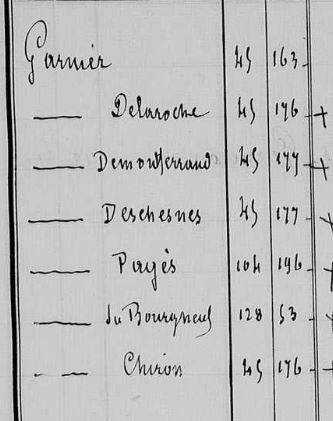 Garnier 45 163
—— Delaroche 45 176 +
—— Demontferrand 45 177 +
—— Deschesnes 45 177 +
—— Pagés 104 196 +
—— du Bourgneuf 128 53 +
—— Chiron 45 176 +